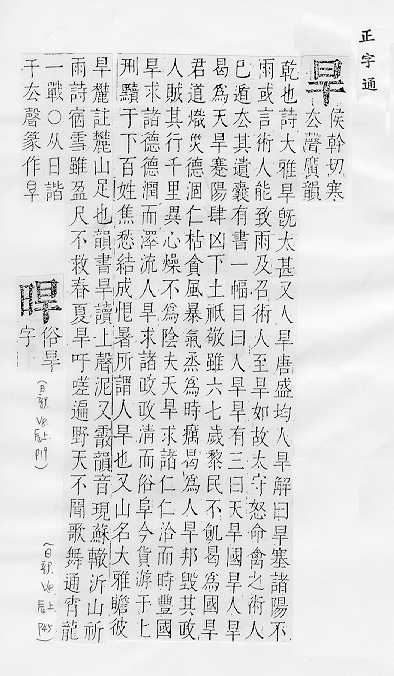 正字通
旱
侯幹切寒
去聲廣韻
乾也詩大雅旱旣太甚又人旱唐盛均人旱解曰旱塞諸陽不
雨或言術人能致雨及召術人至旱如故太守怒命禽之術人
已遁去其遺囊有書一幅目曰人旱旱有三曰天旱國旱人旱
曷爲天旱蹇陽肆凶下土祇敬雖六七歲黎民不飢曷爲國旱
君道熾災德涸仁枯貪風暴氣烝爲時癘曷爲人旱邦毀其政
人賊其行千里異心燥不爲陰夫天旱求諸仁仁洽而時豐國
旱求諸德德潤而澤流人旱求諸政政清而俗阜今貨游于上
刑黷于下百姓焦愁結成 暑所謂人旱也又山名大雅瞻彼
旱麓註麓山足也韻書旱讀上聲泥又霰韻音現蘇轍沂山祈
雨詩宿雪雖盈尺不救春夏旱吁嗟遍野天不聞歌舞通宵龍
一戰○从日諧
干去聲篆作旱
㫨
俗旱
字